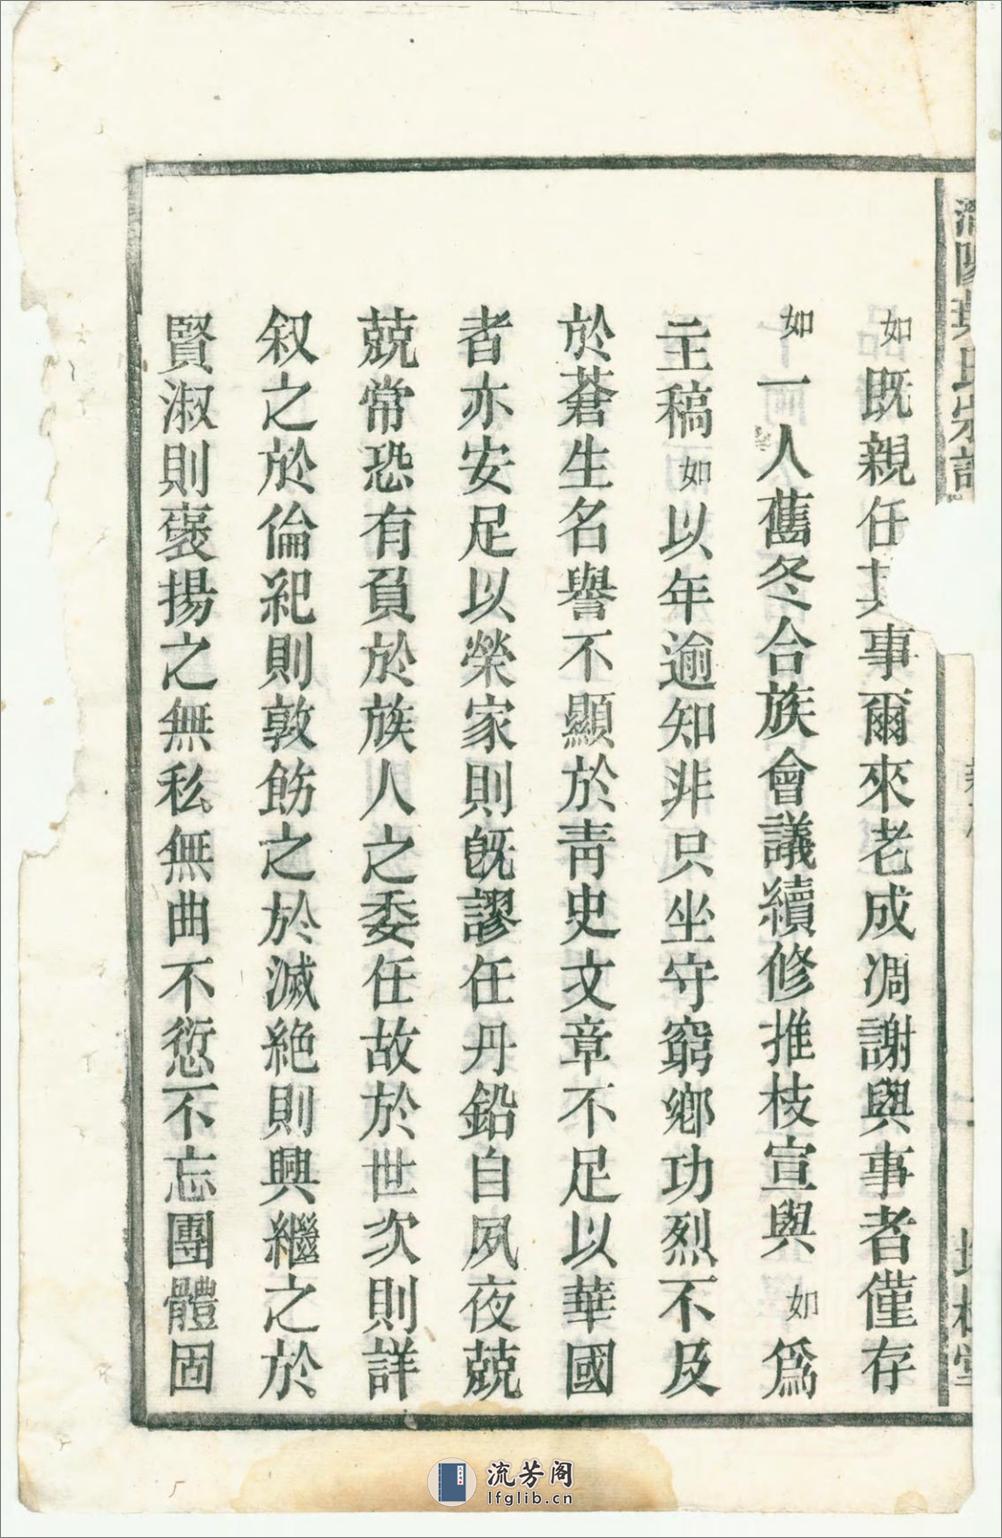 如既親任其事爾來老成凋謝與事者僅存
如一人舊冬合族會議續修推枝宣與如爲
主稿如以年逾知非只坐守窮鄉功烈不及
於蒼生名譽不顯於靑史文章不足以華國
者亦安足以榮家則旣謬任丹鉛自夙夜兢
兢常恐有負於族人之委任故於世次則詳
叙之於倫紀則敦飭之於滅絶則興繼之於
賢淑則褒揚之無私無曲不愆不忘團體固
流芳阁
lfglib.cn